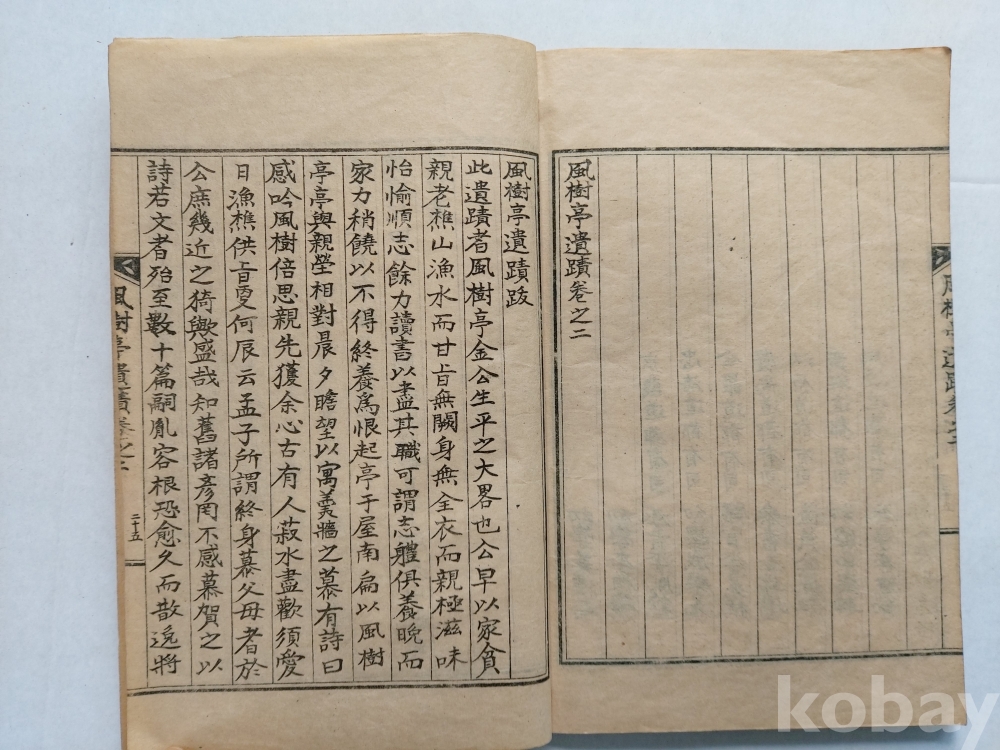 風樹亭遺蹟卷之二
風樹亭遺蹟跋
此遺蹟者風樹亭金公生平之大畧也公早以家貧
親老樵山漁水而甘旨無闕身無全衣而親極滋味
怡愉順志餘力讀書以盡其職可謂志軆俱養晩而
家力稍饒以不得終養爲恨起亭于屋南扁以風樹
亭亭與親塋相對晨夕瞻望以寓羹牆之慕有詩曰
感吟風樹倍思親先獲余心古有人菽水盡歡須愛
日漁樵供旨更何辰云孟子所謂終身慕父母者於
公庶幾近之猗歟盛哉知舊諸彦罔不感慕賀之以
詩若文者殆至數十篇嗣胤容根恐愈久而散逸將
風樹亭遺蹟卷之二
二十五
風樹亭遺蹟卷之二
kobay